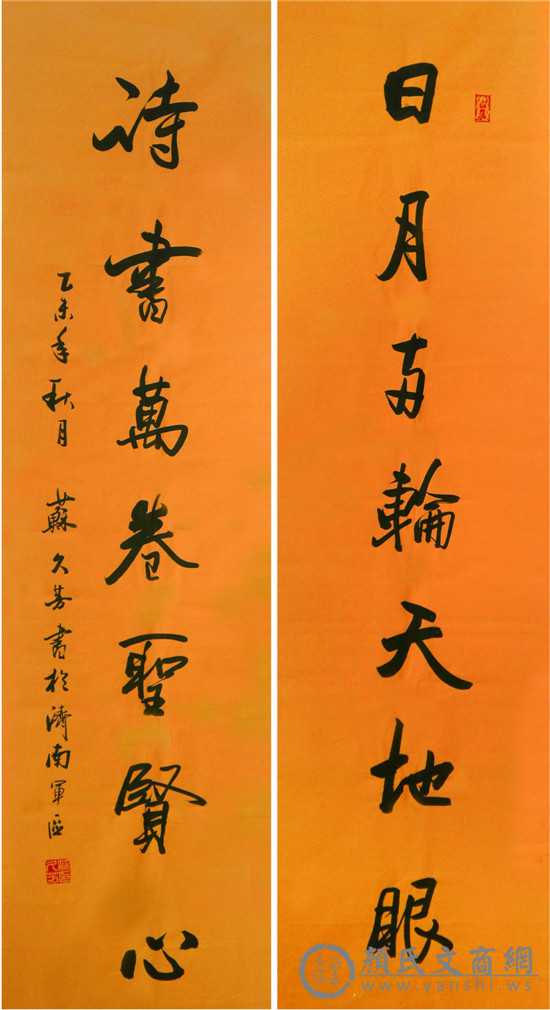 日月両輪天地眼
詩書萬卷聖賢心
乙未年秋月 蘇久芳書於濟南軍區
顏氏文商網
www.yanshi.ws